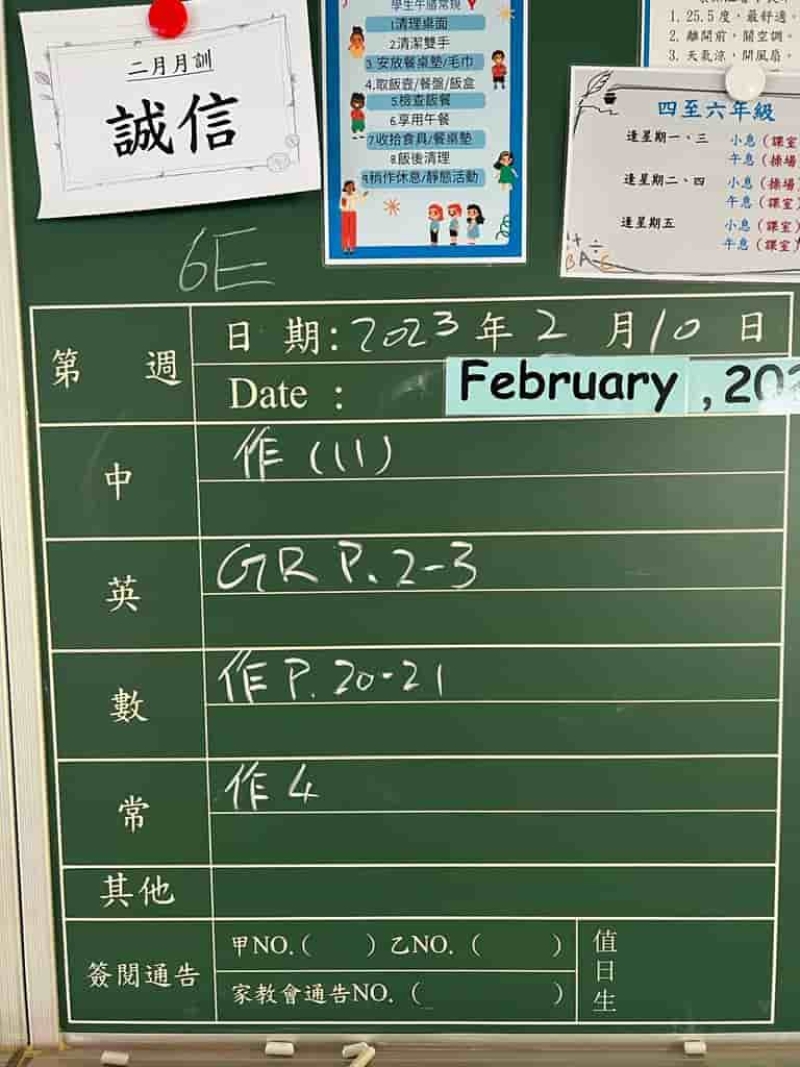 二月月訓
誠信
學生午膳常規
1清理桌面
2清潔雙手
3.安放餐桌墊/毛巾
4.取飯壺/餐盤/飯盒
5檢查飯餐
6.享用午餐
7收拾食具/餐桌墊
8.飯後清理
9稍作休息/靜態活動
1. 25.5度，最舒適。
2. 離開前，關空調。
3. 天氣涼，開風扇。
四至六年級
逢星期一、三 小息(課室
午息(操場
逢星期二、四 小息(操場)
午息(課室)
逢星期五 小息(課室)
午息(課室)
6E
第 週
日 期:2023年2月10日
Date : February , 202
中 作(11)
英 GR P.2-3
數 作P.20-21
常 作4
其他
簽閱通告 甲NO.( ) 乙NO. ( )
家教會通告NO. ( )
值日生